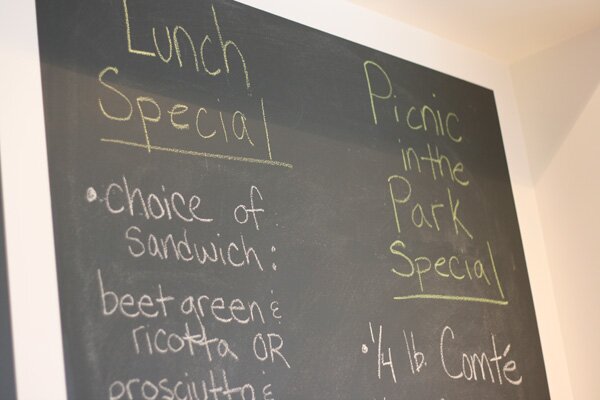 Lunch
Special
• choice of
sandwich:
beet green &
ricotta OR
prosciutto &
Picnic
in the
Park
Special
• 1/4 lb. Comté